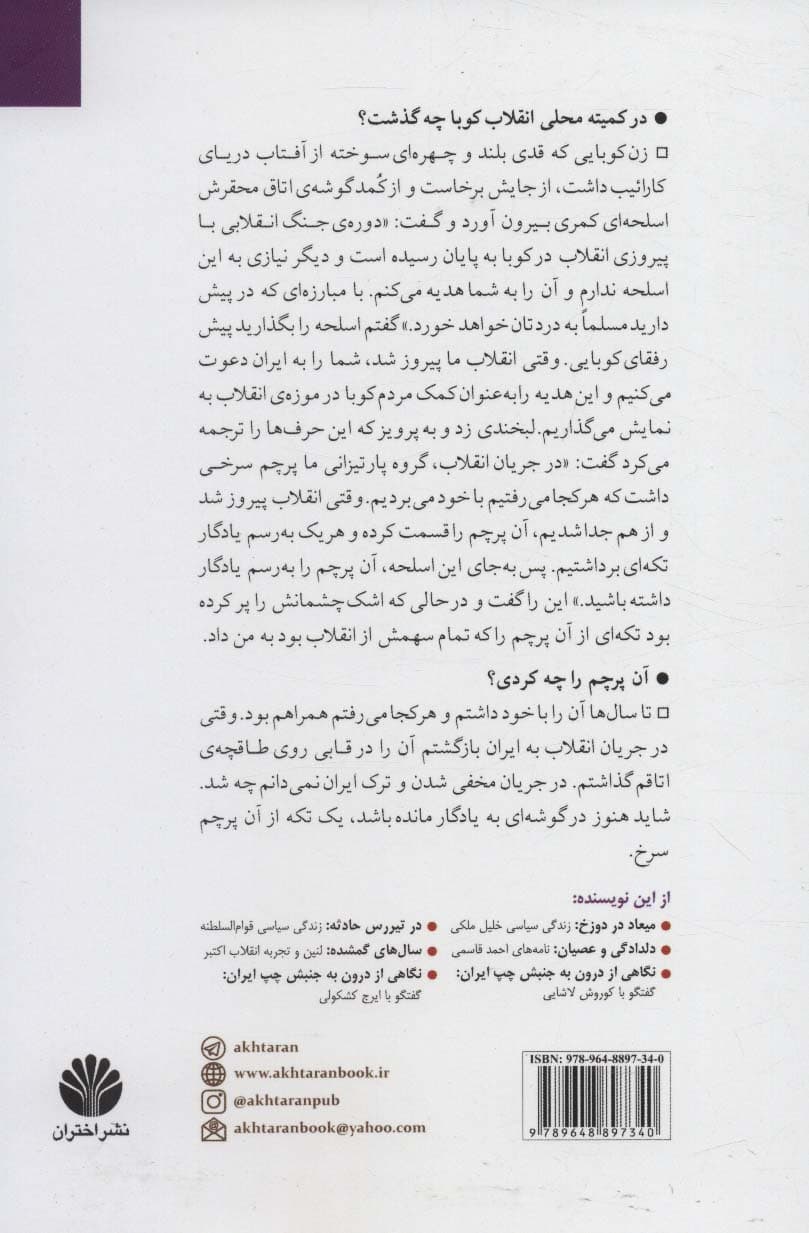 ● در کمیته محلی انقلاب کوبا چه گذشت؟
□ زن کوبایی که قدی بلند و چهره‌ای سوخته از آفتاب دریای
کارائیب داشت، از جایش برخاست و از کُمد گوشه‌ی اتاق محقرش
اسلحه‌ای کمری بیرون آورد و گفت: «دوره‌ی جنگ انقلابی با
پیروزی انقلاب در کوبا به پایان رسیده است و دیگر نیازی به این
اسلحه ندارم و آن را به شما هدیه می‌کنم. با مبارزه‌ای که در پیش
دارید مسلماً به دردتان خواهد خورد.» گفتم اسلحه را بگذارید پیش
رفقای کوبایی. وقتی انقلاب ما پیروز شد، شما را به ایران دعوت
می‌کنیم و این هدیه را به‌عنوان کمک مردم کوبا در موزه‌ی انقلاب به
نمایش می‌گذاریم. لبخندی زد و به پرویز که این حرف‌ها را ترجمه
می‌کرد گفت: «در جریان انقلاب، گروه پارتیزانی ما پرچم سرخی
داشت که هرکجا می‌رفتیم با خود می‌بردیم. وقتی انقلاب پیروز شد
و از هم جدا شدیم، آن پرچم را قسمت کرده و هریک به‌رسم یادگار
تکه‌ای برداشتیم. پس به‌جای این اسلحه، آن پرچم را به‌رسم یادگار
داشته باشید.» این را گفت و در حالی که اشک چشمانش را پر کرده
بود تکه‌ای از آن پرچم را که تمام سهمش از انقلاب بود به من داد.
● آن پرچم را چه کردی؟
□ تا سال‌ها آن را با خود داشتم و هرکجا می‌رفتم همراهم بود. وقتی
در جریان انقلاب به ایران بازگشتم آن را در قابی روی طاقچه‌ی
اتاقم گذاشتم. در جریان مخفی شدن و ترک ایران نمی‌دانم چه شد.
شاید هنوز در گوشه‌ای به یادگار مانده باشد، یک تکه از آن پرچم
سرخ.
از این نویسنده:
● میعاد در دوزخ: زندگی سیاسی خلیل ملکی
● دلدادگی و عصیان: نامه‌های احمد قاسمی
● نگاهی از درون به جنبش چپ ایران:
گفتگو با کوروش لاشایی
● در تیررس حادثه: زندگی سیاسی قوام‌السلطنه
● سال‌های گمشده: لنین و تجربه انقلاب اکتبر
● نگاهی از درون به جنبش چپ ایران:
گفتگو با ایرج کشکولی
ISBN: 978-964-8897-34-0
9 789648 897340
akhtaran
www.akhtaranbook.ir
@akhtaranpub
akhtaranbook@yahoo.com
نشر اختران